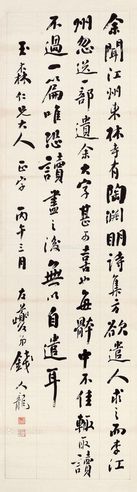 余聞江州東林寺有陶淵明詩集方欲遣人求之而李江
州忽送一部遺余大字甚可喜也每體中不佳輒取讀
不過一篇唯恐讀盡之後無以自遣耳
玉森仁兄大人 正字 丙午三月 弟錢人龍